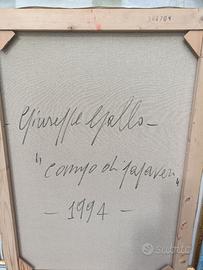 - Giuseppe Gallo -
"campo di papaveri"
- 1994 -
subito